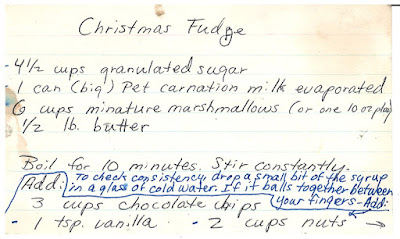 Christmas Fudge
- 4 1/2 cups granulated sugar
1 can (big) Pet carnation milk evaporated
6 cups minature marshmallows (or one 10 oz pkg)
1/2 lb. butter
Boil for 10 minutes. Stir constantly.
Add: To check consistency, drop a small bit of the syrup
in a glass of cold water. If it balls together between
your fingers - Add:
3 cups chocolate chips
- 1 tsp. vanilla - 2 cups nuts →